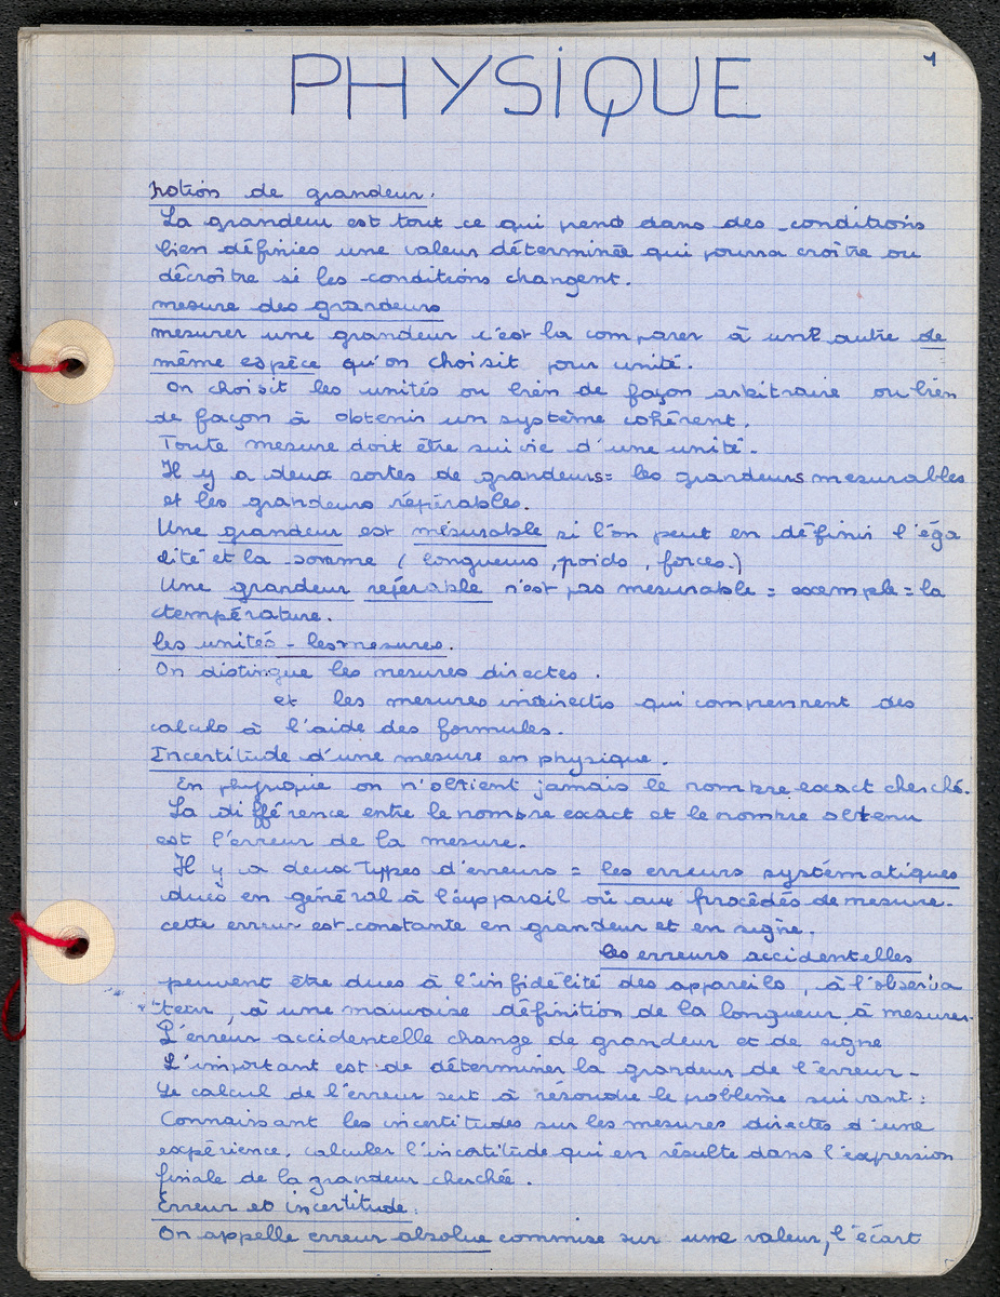 1
PHYSIQUE
notion de grandeur.
La grandeur est tout ce qui prend dans des conditions
bien définies une valeur déterminée qui pourra croître ou
décroître si les conditions changent.
mesure des grandeurs
mesurer une grandeur c'est la comparer à une autre de
même espèce qu'on choisit pour unité.
On choisit les unités ou bien de façon arbitraire ou bien
de façon à obtenir un système cohérent.
Toute mesure doit être suivie d'une unité.
Il y a deux sortes de grandeurs = les grandeurs mesurables
et les grandeurs repérables.
Une grandeur est mésurable si l'on peut en définir l'éga
lité et la somme (longueurs, poids, forces.)
Une grandeur repérable n'est pas mesurable = exemple = la
température.
les unités - les mesures.
On distingue les mesures directes.
et les mesures indirectes qui comprennent des
calculs à l'aide des formules.
Incertitude d'une mesure en physique.
En physique on n'obtient jamais le nombre exact cherché.
La différence entre le nombre exact et le nombre obtenu
est l'erreur de la mesure.
Il y a deux types d'erreurs = les erreurs systématiques
dues en général à l'appareil où aux procédés de mesure.
cette erreur est constante en grandeur et en signe.
les erreurs accidentelles
peuvent être dues à l'infidélité des appareils, à l'observa
teur, à une mauvaise définition de la longueur à mesurer.
L'erreur accidentelle change de grandeur et de signe
L'important est de déterminer la grandeur de l'erreur -
Le calcul de l'erreur sert à résoudre le problème suivant :
Connaissant les incertitudes sur les mesures directes d'une
expérience, calculer l'incertitude qui en résulte dans l'expression
finale de la grandeur cherchée.
Erreur et incertitude.
On appelle erreur absolue commise sur une valeur, l'écart